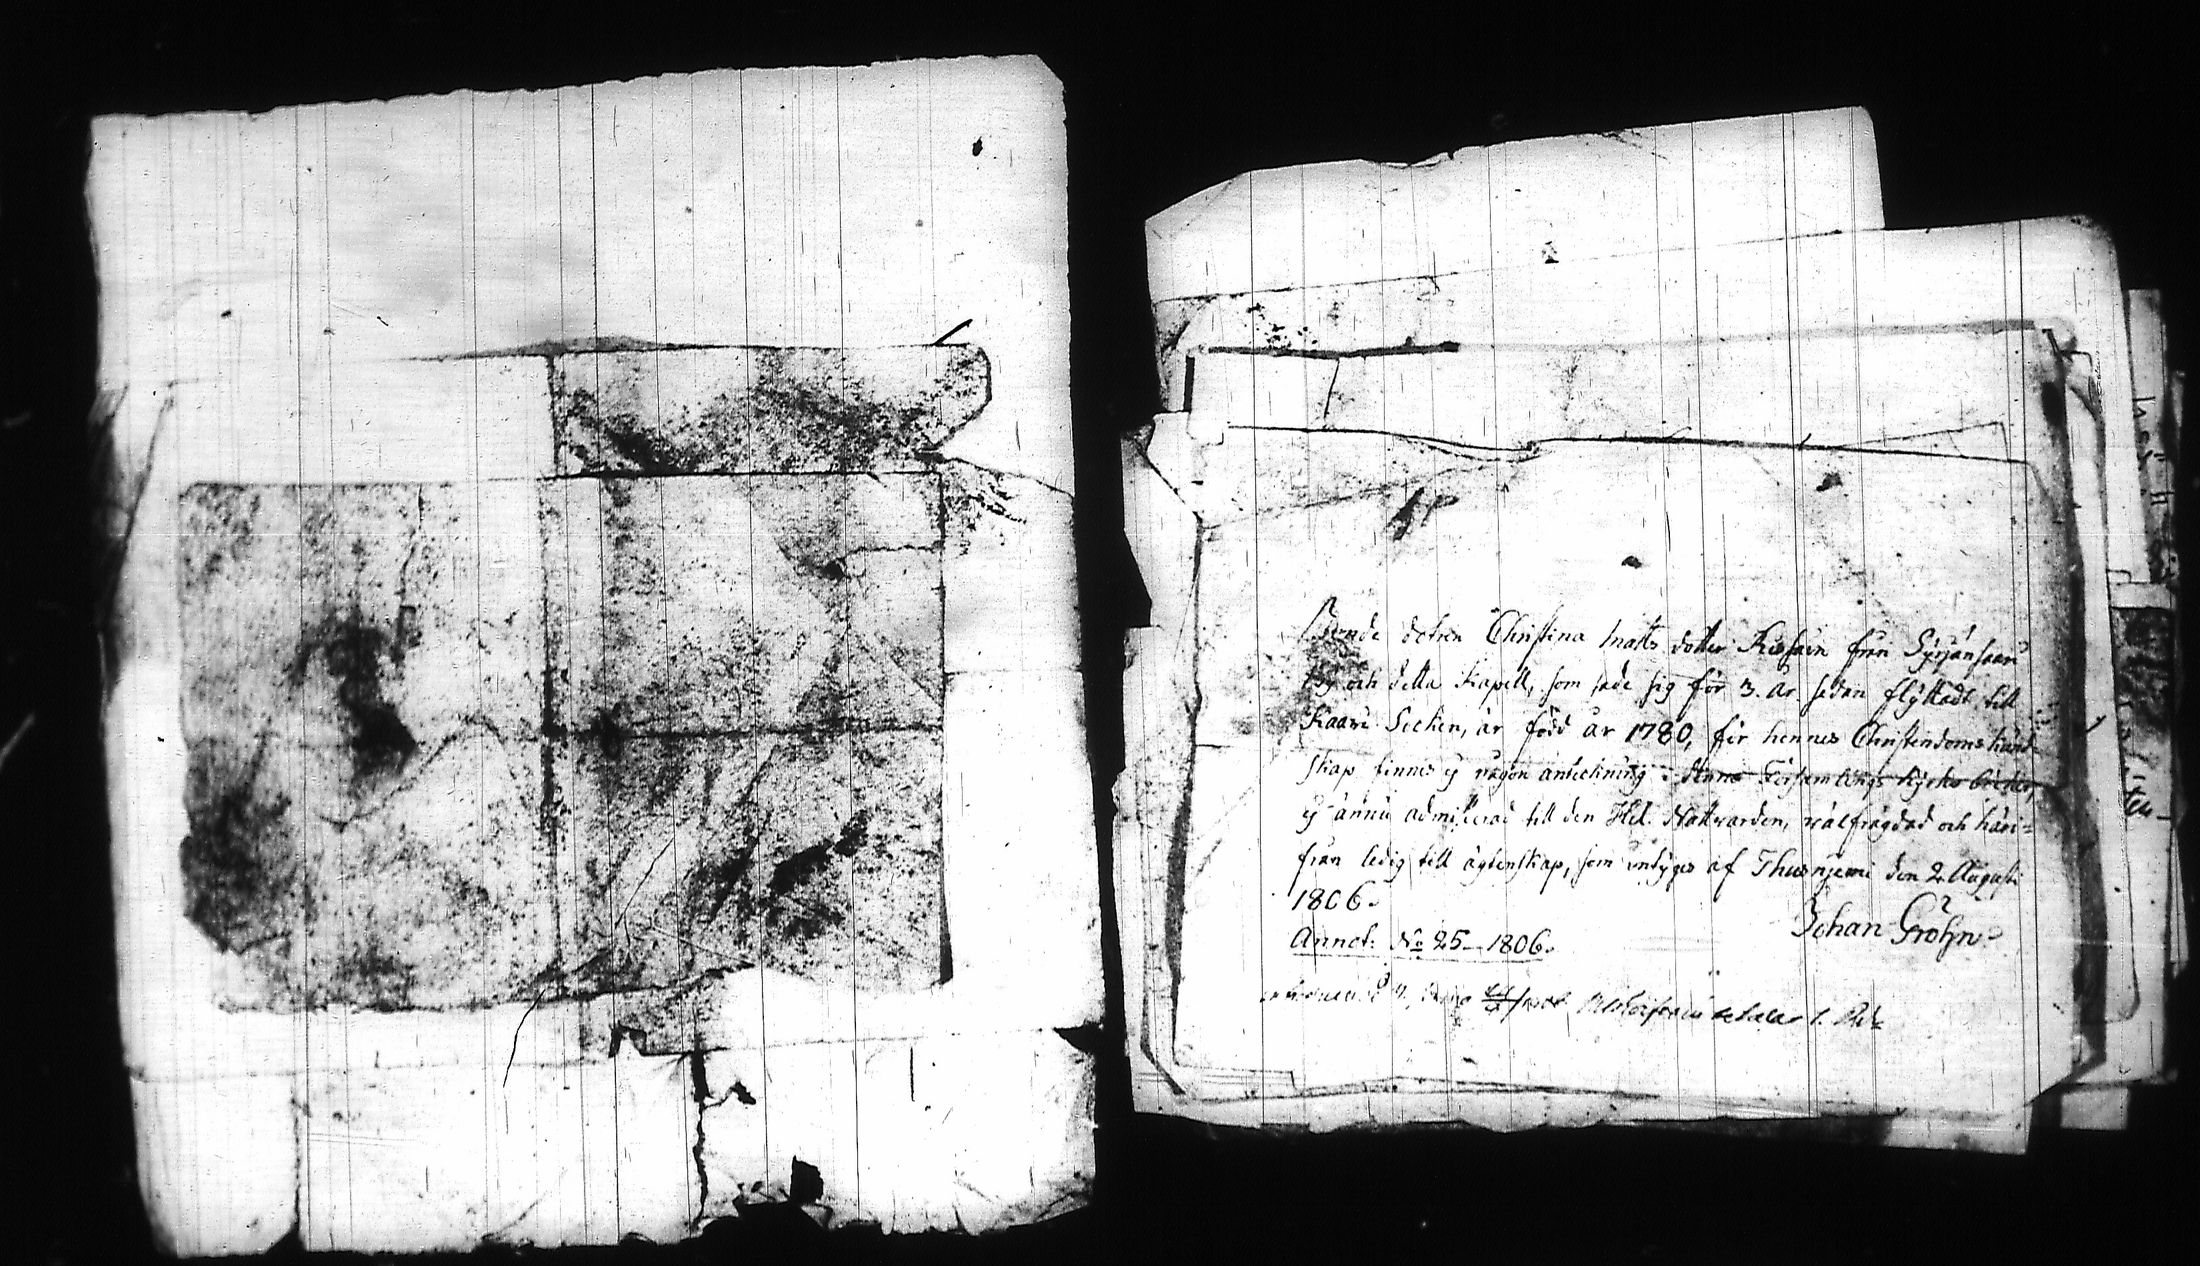 Bonde dotren Christina Matts dotter Kiessain från Syrjänsaari
by och detta Kapell, som sade sig för 3. år sedan flyttadt till
Kaavi Sockn, är född år 1780, för hennes Christendoms kund-
skap finnes ej någon anteckning i denna Församlings Kyrko böcker,
ej ännu admitterad till den Hel. Nattvarden, välfrägdad och häri=
från ledig till ägtenskap, som intygas af Thusnjemi den 2 Augusti
1806.
Johan Gröhn
Annot: No 25 1806.
betalar 1. Rd